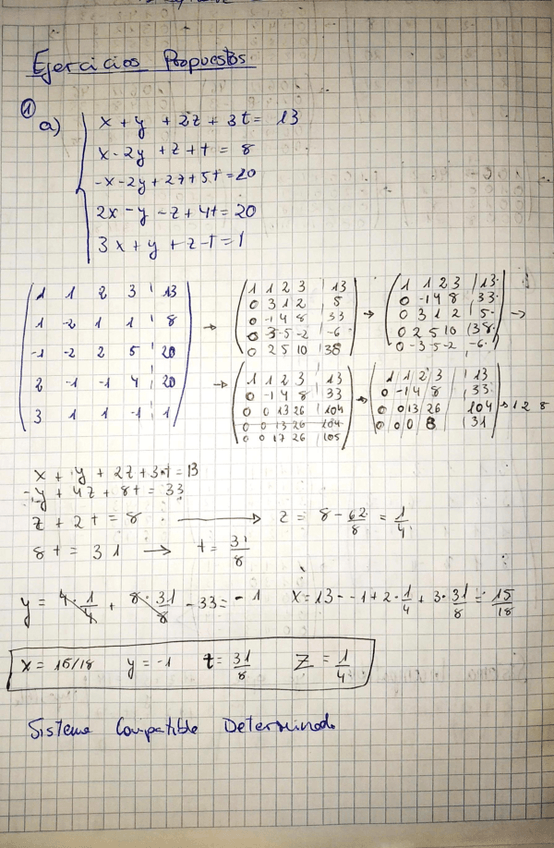 Ejercicios Propuestos
① a) x + y + 2z + 3t = 13
x - 2y + z + t = 8
-x - 2y + 2z + 5t = 20
2x - y - z + 4t = 20
3x + y + z - t = 1
1 1 2 3 | 13
1 -2 1 1 | 8
-1 -2 2 5 | 20
2 -1 -1 4 | 20
3 1 1 -1 | 1
→
1 1 2 3 | 13
0 3 1 2 | 5
0 -1 4 8 | 33
0 -3 -5 -2 | -6
0 2 5 10 | 38
→
1 1 2 3 | 13
0 -1 4 8 | 33
0 3 1 2 | 5
0 2 5 10 | 38
0 -3 -5 -2 | -6
→
→
1 1 2 3 | 13
0 -1 4 8 | 33
0 0 13 26 | 104
0 0 13 26 | 104
0 0 17 26 | 105
→
1 1 2 3 | 13
0 -1 4 8 | 33
0 0 13 26 | 104
0 0 0 8 | 31
→ 1 2 8
x + y + 2z + 3t = 13
-y + 4z + 8t = 33
z + 2t = 8 → z = 8 - 62/8 = 1/4
8t = 31 → t = 31/8
y = 4·1/4 + 8·31/8 - 33 = -1 x = 13 - -1 + 2·1/4 + 3·31/8 = 15/18
x = 15/18 y = -1 t = 31/8 z = 1/4
Sistema Compatible Determinado